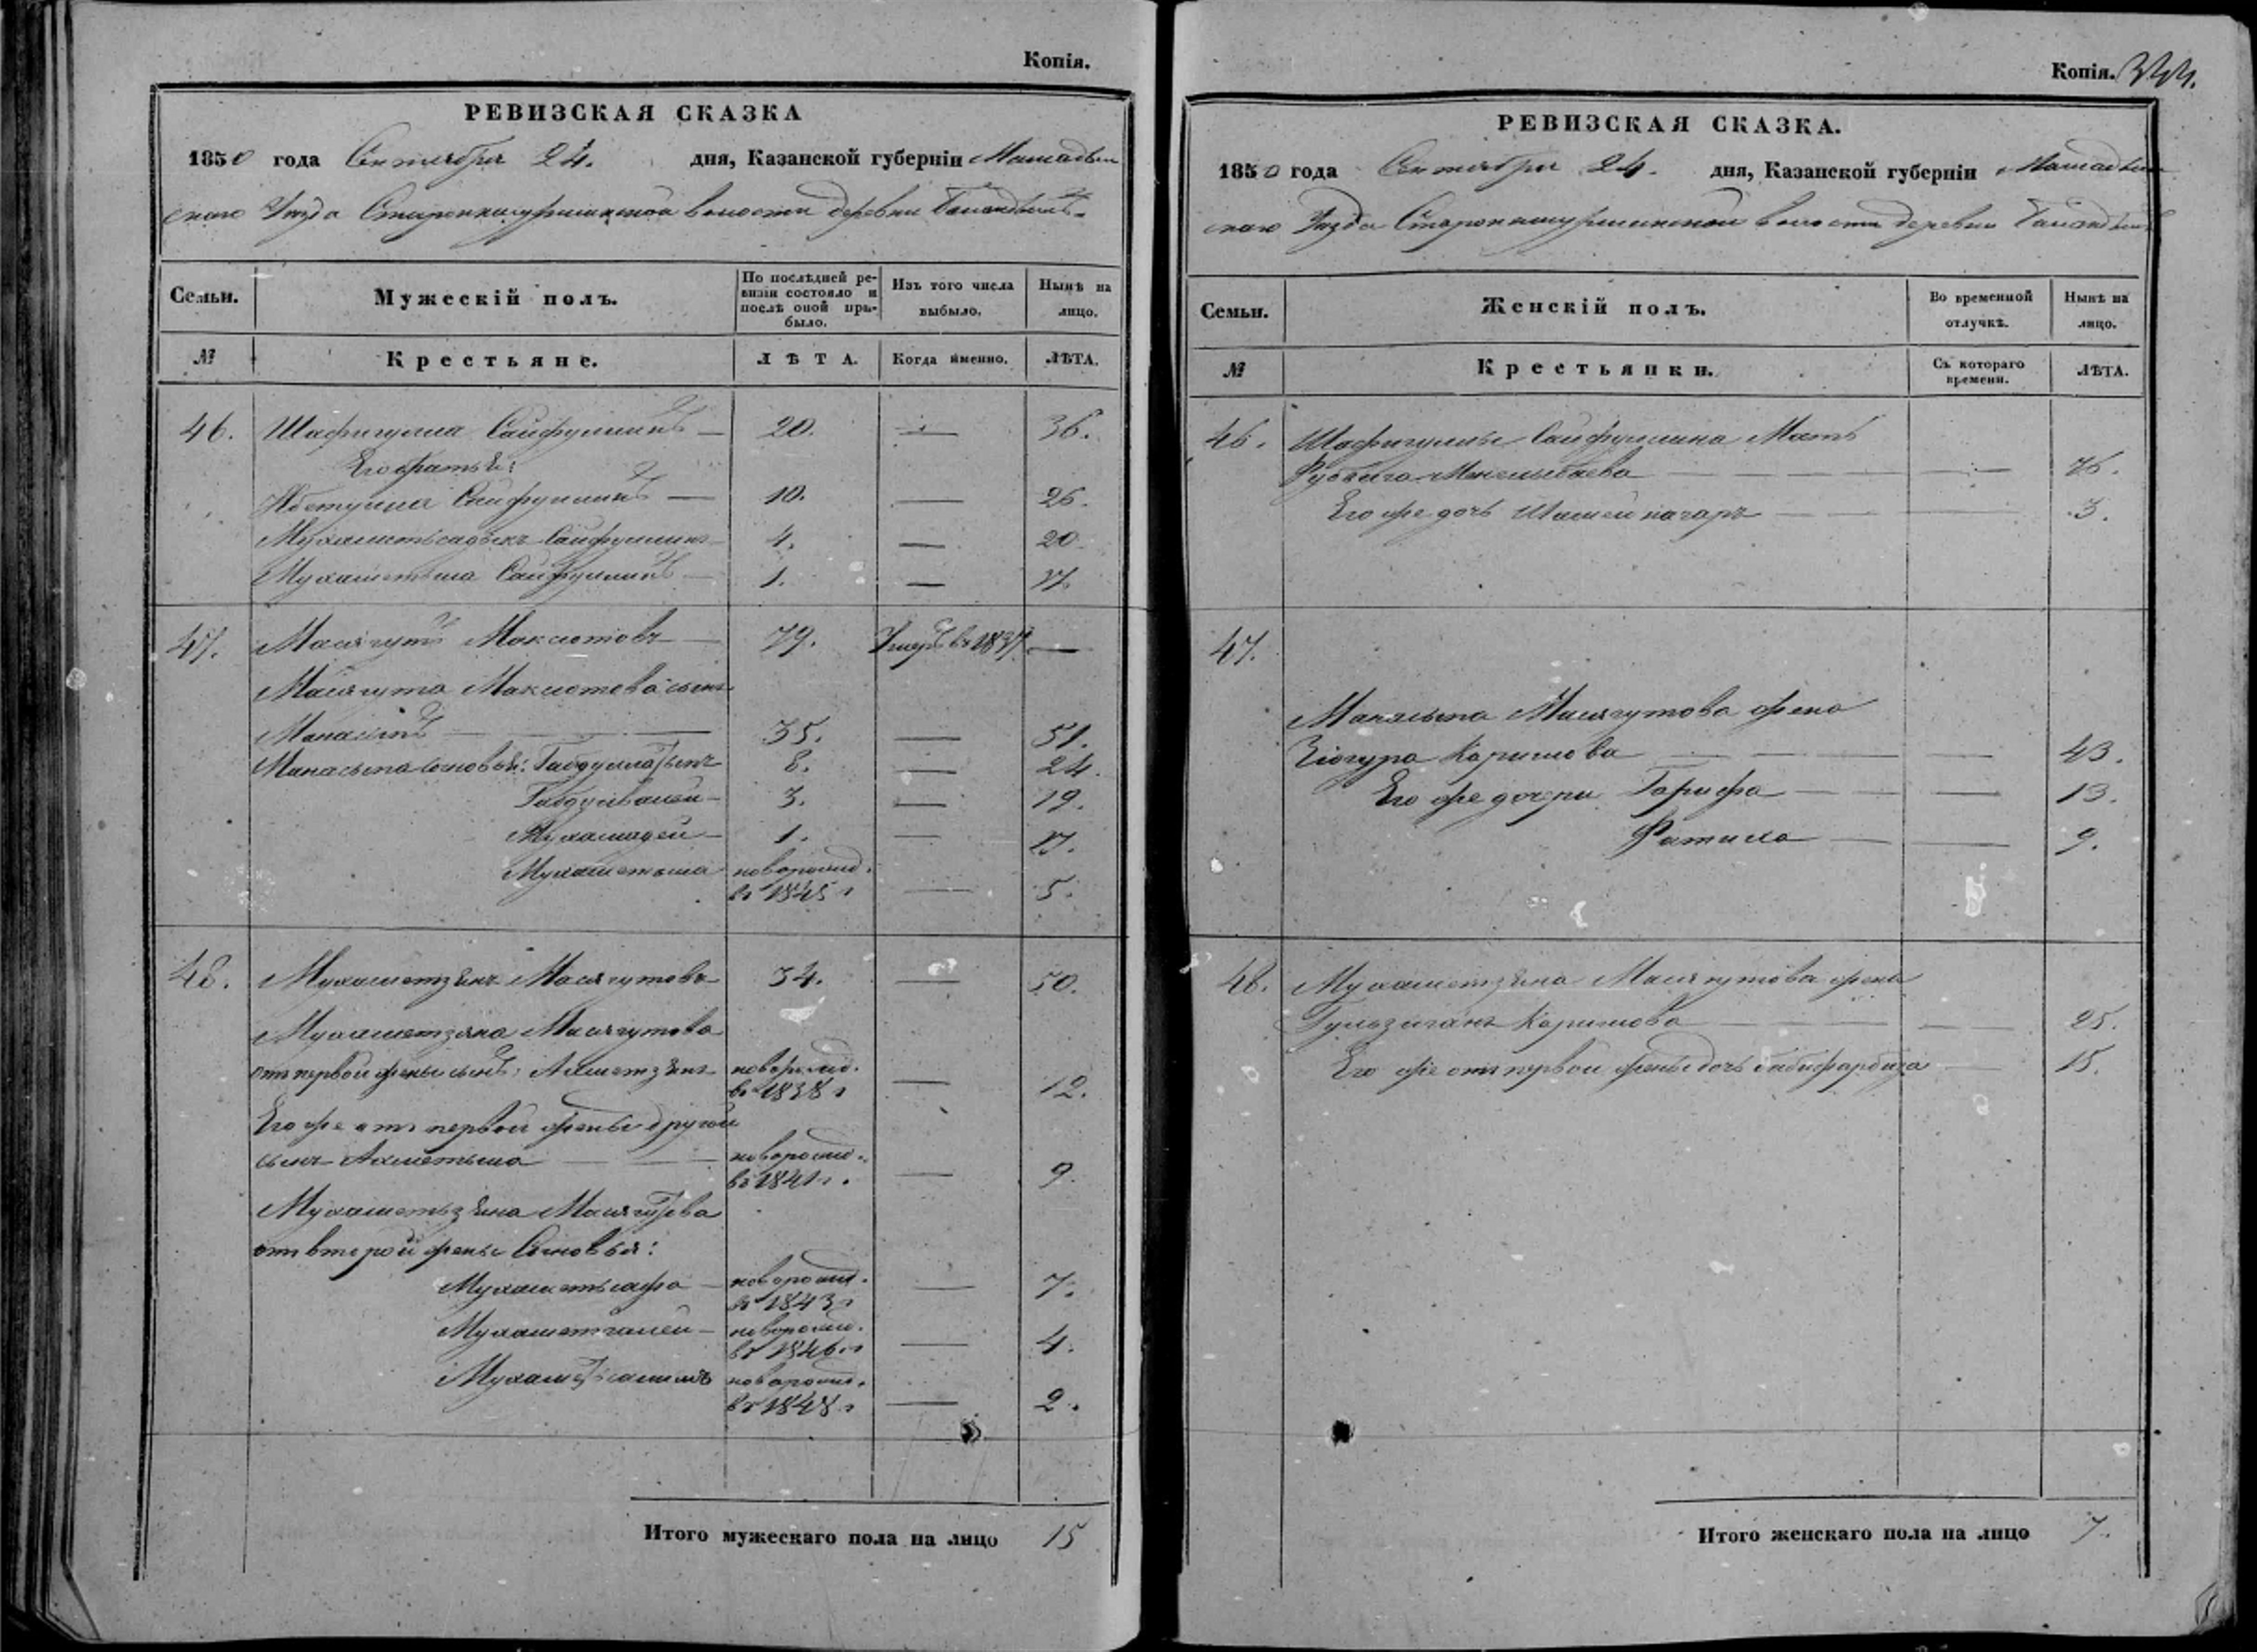 Копія.
РЕВИЗСКАЯ СКАЗКА
1850 года Сентября 24. дня, Казанской губерніи Мамадыш
скаго Уѣзда волости деревни
Семьи. Мужескій полъ. По послѣдней ре-визіи состояло и послѣ оной при-было. Изъ того числа выбыло. Нынѣ на лицо.
№ Крестьяне. ЛѢТА. Когда именно. ЛѢТА.
46. Шафигулла Сайфуллинъ — 20. — 36.
Его братья:
Сайфуллинъ — 10. — 26.
Мухаметьсадыкъ Сайфуллинъ 4. — 20.
Мухаметьша Сайфуллинъ — 1. — 17.
47. Масягутъ Максютовъ — 79. Умеръ въ 1837 —
Масягута Максютова сынъ
Манасыпъ — 35. — 51.
Манасыпа сыновья: 8. — 24.
3. — 19.
Мухамадей — 1. — 17.
Мухаметьша новорожд.
въ 1845 г — 5.
48. Мухаметзянъ Масягутовъ 34. — 50.
Мухаметзяна Масягутова
отъ первой жены сынъ: Ахметзянъ новорожд.
въ 1838 г — 12.
Его же отъ первой жены другой
сынъ Ахметьша — новорожд.
въ 1841 г. — 9.
Мухаметьзяна Масягутова
отъ второй жены Сыновья:
Мухаметьсафа — новорожд.
въ 1843 г — 7.
Мухаметгалей — новорожд.
въ 1846 г — 4.
новорожд.
въ 1848 г — 2.
Итого мужескаго пола на лицо 15
Копія. 344.
РЕВИЗСКАЯ СКАЗКА.
1850 года Сентября 24. дня, Казанской губерніи Мамадыш
скаго Уѣзда волости деревни
Семьи. Женскій полъ. Во временной отлучкѣ. Нынѣ на лицо.
№ Крестьянки. Съ котораго времени. ЛѢТА.
46. Шафигуллы Сайфуллина Мать
— —
Его же дочь — — 3.
47.
Манасыпа Масягутова жена
Каримова — — 43.
Его же дочери Гарифа — — 13.
Фатиха — — 9.
48. Мухаметзяна Масягутова жена
Каримова — — 25.
Его же отъ первой жены дочь — 15.
Итого женскаго пола на лицо 7.